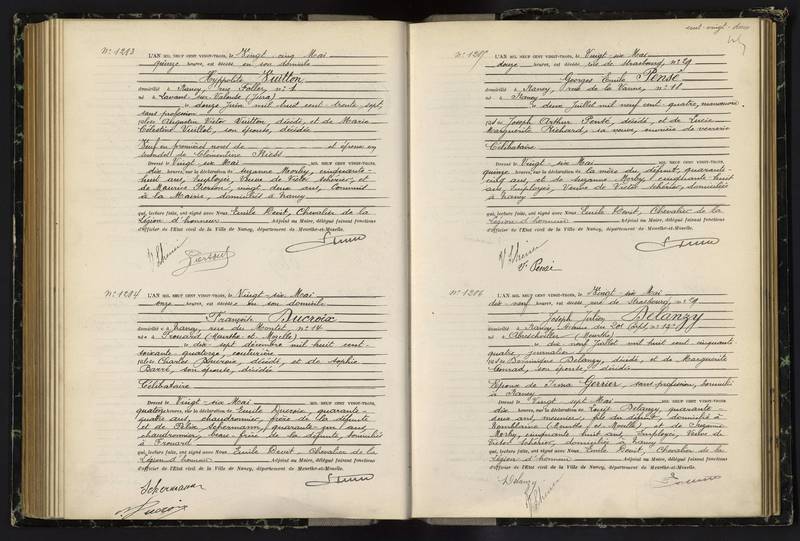 cent-vingt-deux
N° 1283
L'AN MIL NEUF CENT VINGT-TROIS, le Vingt-cinq Mai
quinze heures, est décédé en son domicile
Hyppolite Vuitton
domicilié à Nancy, rue n° 1
né à Lavans-sur-Valouse (Jura)
le douze Juin mil huit cent trente sept,
sans profession
fils de Augustin Victor Vuitton, décédé, et de Marie
Célestine Vuillot, son épouse, décédée
Veuf en premières noces de et époux en
secondes de Clémentine
Dressé le Vingt-six Mai MIL NEUF CENT VINGT-TROIS,
dix heures, sur la déclaration de Suzanne cinquante-
huit ans, Employée, Veuve de Victor et
de Maurice Pierson, vingt deux ans, Commis
à la Mairie, domiciliés à Nancy
qui, lecture faite, ont signé avec Nous Emile Chevalier de la
Légion d'honneur Adjoint au Maire, délégué faisant fonctions
d'officier de l'Etat civil de la Ville de Nancy, département de Meurthe-et-Moselle.
N° 1284
L'AN MIL NEUF CENT VINGT-TROIS, le Vingt-six Mai
onze heures, est décédée en son domicile
Françoise Ducroix
domiciliée à Nancy, rue du Montet n° 14
née à Frouard (Meurthe-et-Moselle)
le dix-sept décembre mil huit cent-
soixante-quatorze, couturière
fille de Charles Ducroix, décédé, et de Sophie
Barré, son épouse, décédée
Célibataire
Dressé le Vingt-six Mai MIL NEUF CENT VINGT-TROIS,
quatorze heures, sur la déclaration de Emile Ducroix, quarante-
quatre ans, chaudronnier, frère de la défunte
et de Félix Schermann, quarante-un ans,
chaudronnier, beau-frère de la défunte, domiciliés
à Frouard
qui, lecture faite, ont signé avec Nous Emile Chevalier de la
Légion d'honneur Adjoint au Maire, délégué faisant fonctions
d'officier de l'Etat civil de la Ville de Nancy, département de Meurthe-et-Moselle.
Schermann
Ducroix
N° 1285
L'AN MIL NEUF CENT VINGT-TROIS, le Vingt-six Mai
douze heures, est décédé rue de Strasbourg, n° 29
Georges Emile Pensé
domicilié à Nancy, rue de la n° 18
né à Nancy
le deux Juillet mil neuf cent quatre, manœuvre
fils de Joseph Arthur Pensé, décédé, et de Lucie
Marguerite Richard, sa veuve, ouvrière de verrerie
Célibataire
Dressé le Vingt-six Mai MIL NEUF CENT VINGT-TROIS,
quinze heures, sur la déclaration de la mère du défunt, quarante-
ans, et de Suzanne cinquante-huit
ans, Employée, Veuve de Victor domiciliées
à Nancy
qui, lecture faite, ont signé avec Nous Emile Chevalier de la
Légion d'honneur Adjoint au Maire, délégué faisant fonctions
d'officier de l'Etat civil de la Ville de Nancy, département de Meurthe-et-Moselle.
Vve Pensé
N° 1286
L'AN MIL NEUF CENT VINGT-TROIS, le Vingt-six Mai
dix-neuf heures, est décédé rue de Strasbourg, n° 29
Joseph Julien Delanzy
domicilié à Nancy,
né à Abreschviller (Meurthe)
le dix neuf Juillet mil huit cent cinquante
quatre, journalier
fils de Dominique Delanzy, décédé, et de Marguerite
Conrad, son épouse, décédée
Epoux de Gerrier, sans profession, domiciliée
à Nancy
Dressé le Vingt-sept Mai MIL NEUF CENT VINGT-TROIS,
dix heures, sur la déclaration de Delanzy, quarante-
deux ans, fils du défunt, domicilié à
(Meurthe et Moselle), et de Suzanne
cinquante huit ans, Employée, Veuve de
Victor domiciliée à Nancy
qui, lecture faite, ont signé avec Nous Emile Chevalier de la
Légion d'honneur Adjoint au Maire, délégué faisant fonctions
d'officier de l'Etat civil de la Ville de Nancy, département de Meurthe-et-Moselle.
Delanzy